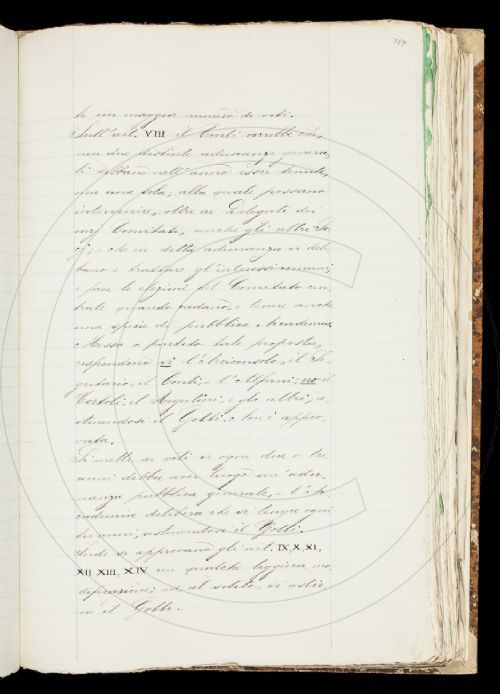 724
te con maggior numero di voti.
Sull'art. VIII il Conti vorrebbe che,
non due distinte adunanze genera-
li debbano nell'anno esser tenute,
ma una sola; alla quale possano
intervenire, oltre ai Delegati dei
varj Comitati, anche gli altri So-
cj; e che in detta adunanza si deb-
bano e trattare gl'interessi comuni,
e fare le elezioni del Comitato cen-
trale quando cadano, e tenere anche
una specie di pubblica Accademia
Messa a partito tale proposta,
rispondono sì l'Arciconsolo, il Se-
gretario, il Conti, e l'Alfani; no il
Tortoli, il Angelini, e gli altri, a-
stenendosi il Gotti. e non è appro-
vata.
Si mette ai voti se ogni due o tre
anni debba aver luogo un'adu-
nanza pubblica generale, e l'Ac-
cademia delibera che si tenga ogni
due anni, astenendosi il Gotti.
Indi si approvano gli art. IX, X, XI,
XII XIII, XIV con qualche leggiera mo-
dificazione; ed, al solito, si astie-
ne il Gotti.